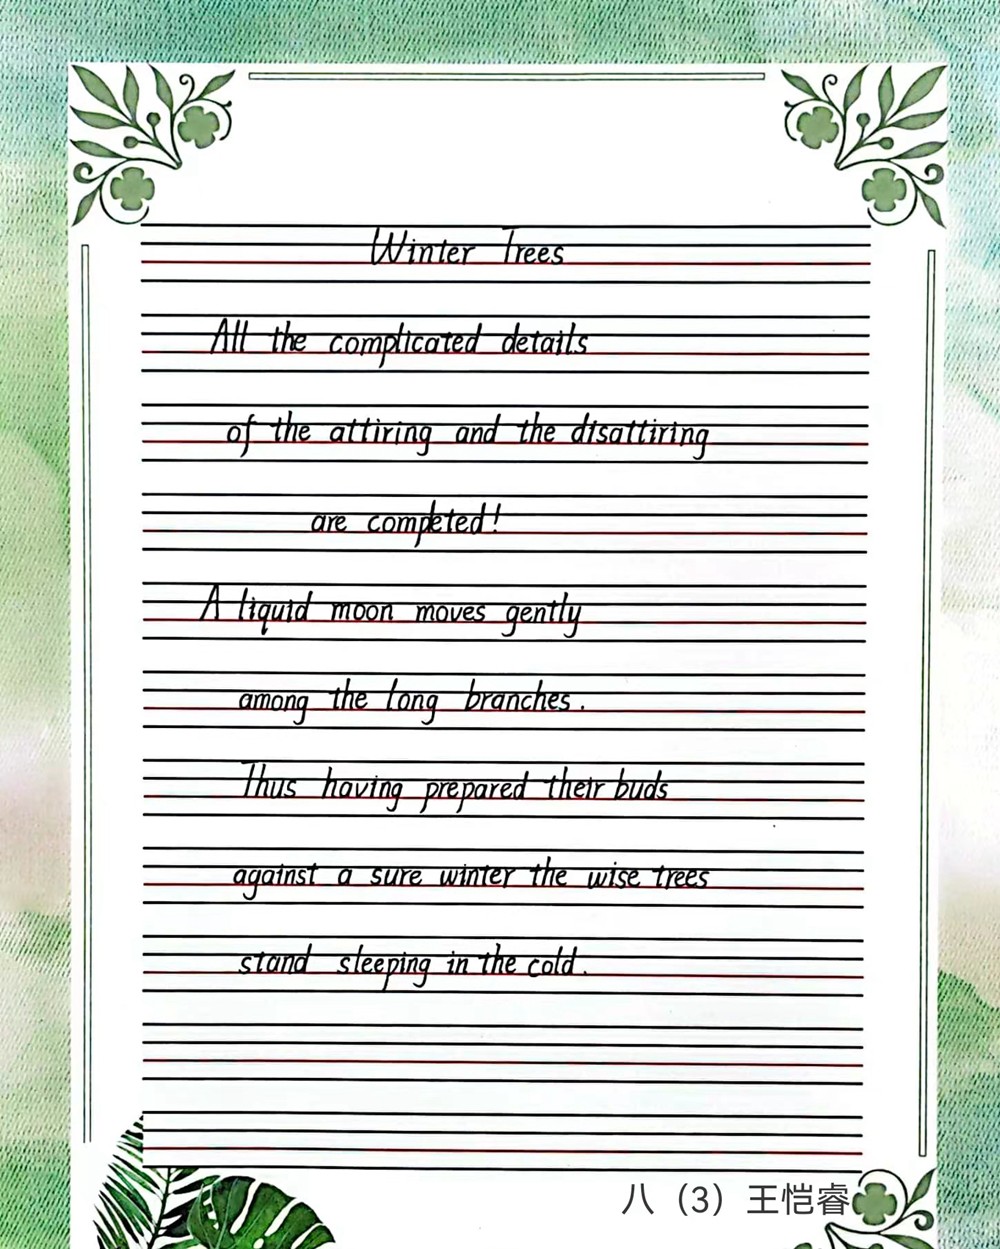 Winter Trees
All the complicated details
of the attiring and the disattiring
are completed!
A liquid moon moves gently
among the long branches.
Thus having prepared their buds
against a sure winter the wise trees
stand sleeping in the cold.
八（3）王恺睿